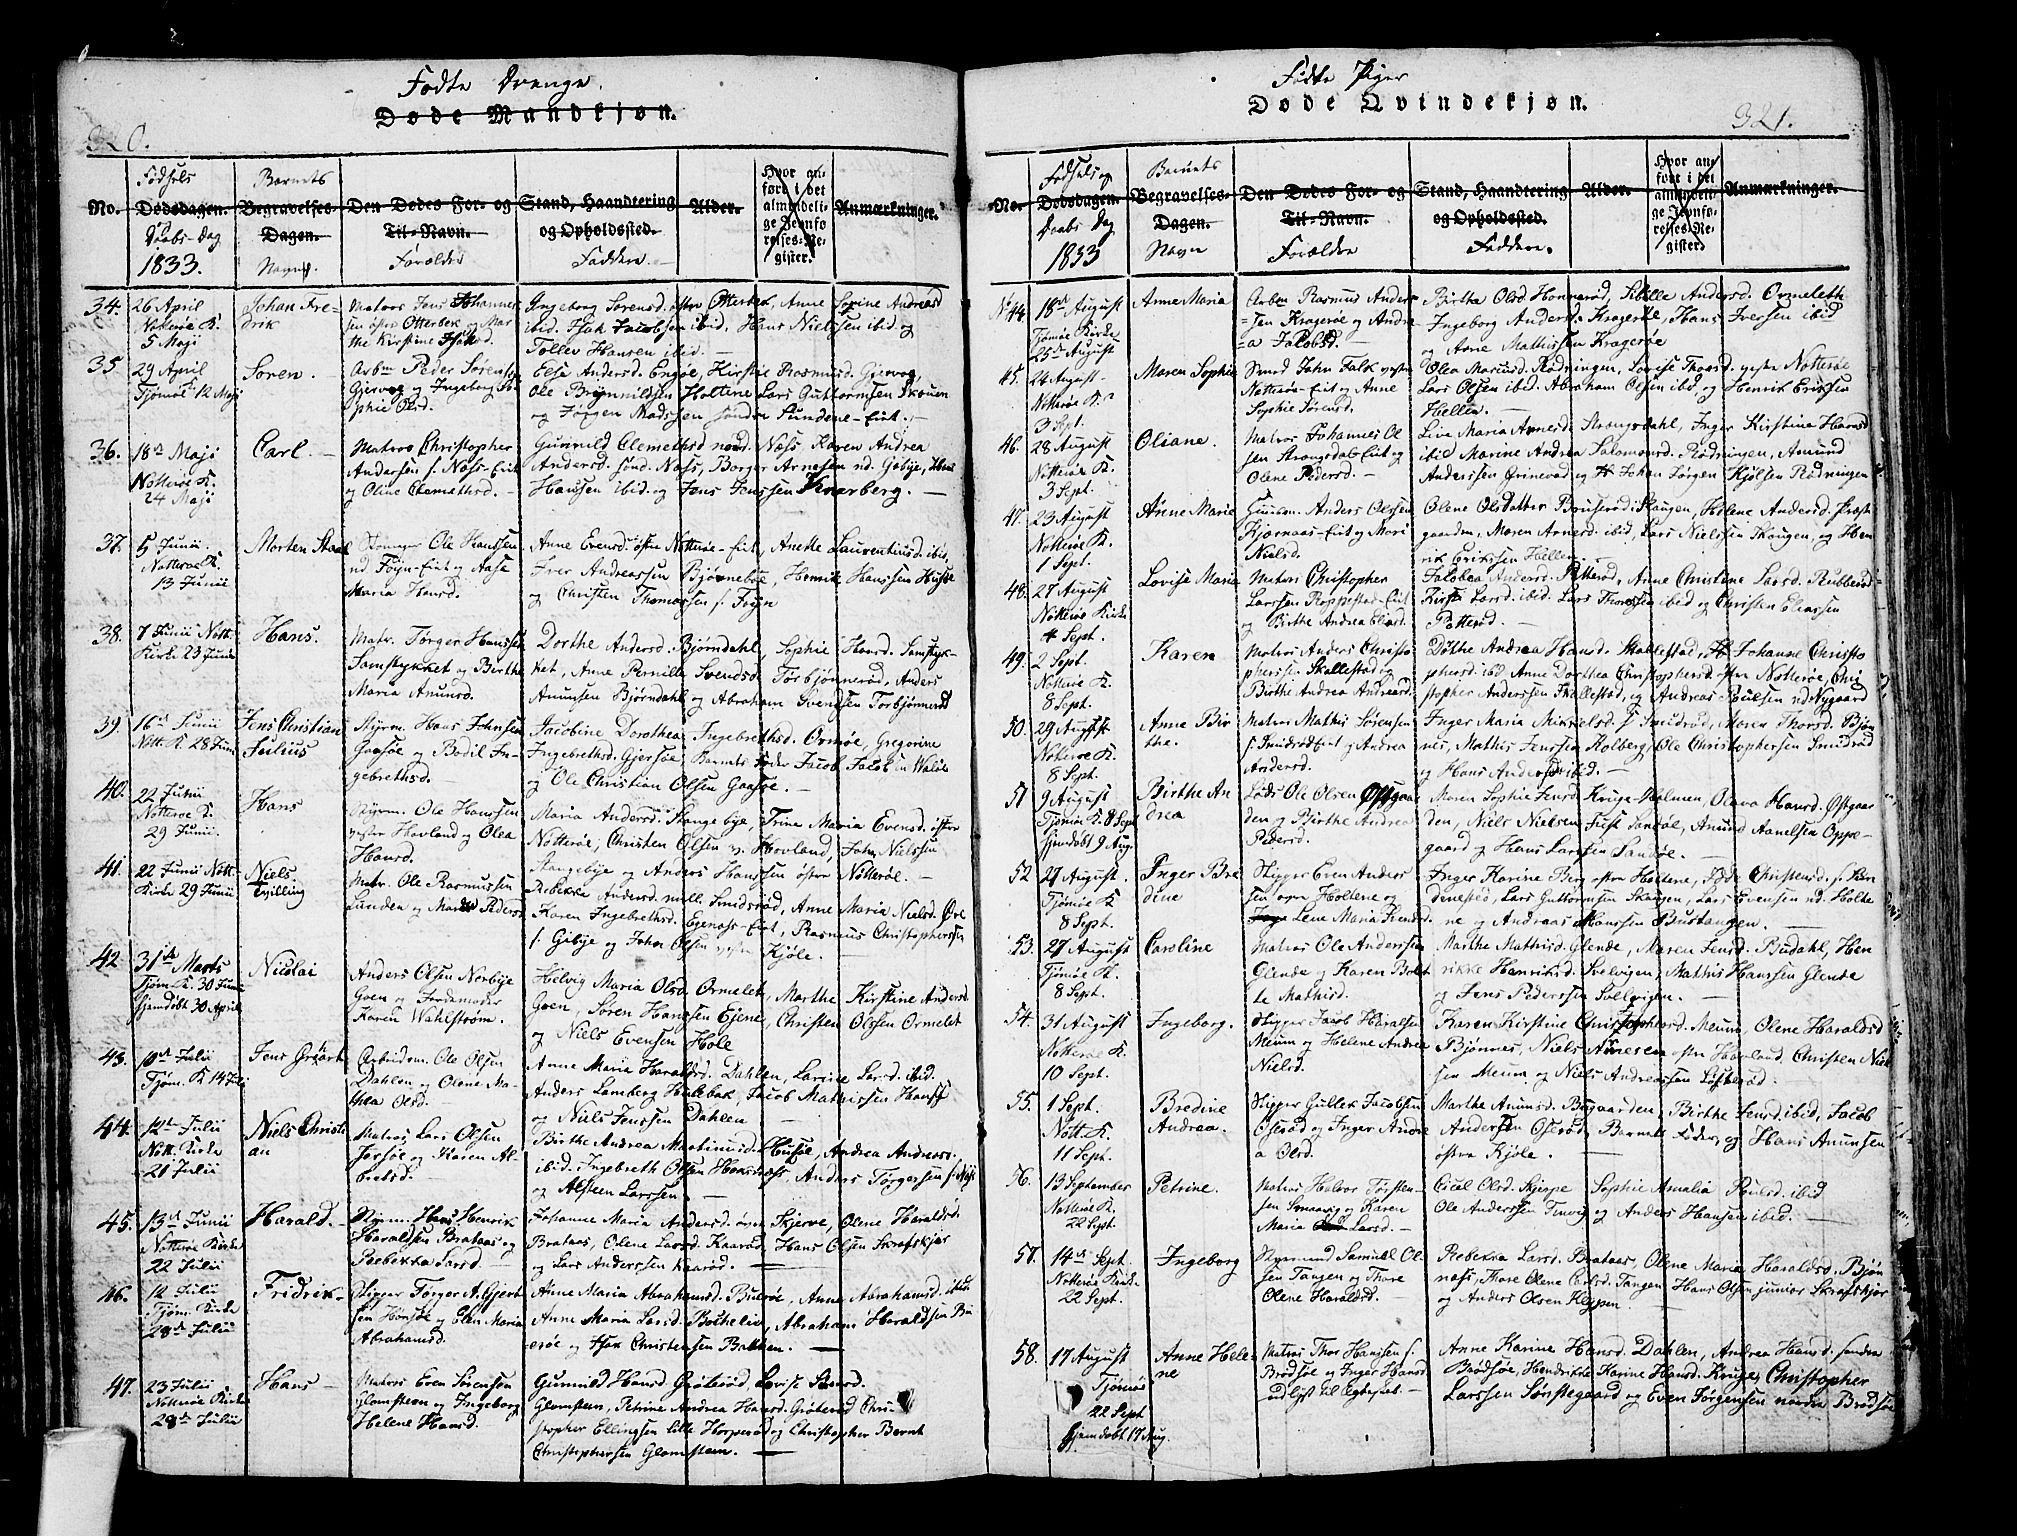 Fødte Drenge.
Døde Mandkjøn.
320.
No.
Fødsels
Dødsdagen.
Daabs-Dag
1833.
Barnets
Begravelses-
Dagen.
Navn.
Den Dødes For- og
Til-Navn.
Forældre
Stand, Haandtering
og Opholdssted.
Faddere
Alder.
Hvor an-
ført i det
almindeli-
ge Jevnfø-
relses-Re-
gister.
Anmærkninger.
34.
26 April
Nøtterøe K.
5 Maji
Johan Fre-
drik
Matros Jens Johannes
sen østre Otterbek og Mar
the Kirstine Isaksd.
Ingeborg Sørensd. østre Otterbek, Anne Sørine Andreasd
ibid. Isak Jacobsen ibid, Hans Nielssen ibid og
Tollev Hansen ibid.
35
29 April
Tjømøe 12 Maji
Søren.
Arbm Peder Sørensen
Gjervog og Ingeborg So
phie Olsd.
Else Andersd. Engøe, Kirstie Rasmusd. Gjervog,
Ole Brynnildsen Holtene, Lars Guttormsen Skouen
og Jørgen Madssen søndre Sundene-Eiet.
36.
18de Maji
Nøtterøe K.
24 Maji
Carl.
Matros Christopher
Andersen s. Næss-Eiet
og Oline Clemethsd.
Gunnild Clemethsd nord. Næss, Karen Andrea
Andersd. sønd. Næss, Borger Arnesen nd. Gabije,
Hanssen ibid. og Jens Jenssen Knarberg.
37.
5 Junii.
Nøtterøe K.
13 Junii
Morten Staal
Ole Hanssen
nd Føyn-Eiet og Aase
Maria Hansd.
Anne Evensd. østre Nøtterøe-Eiet, Anette Laurentiusd. ibid,
Iver Andreassen Bjørnebøe, Henrik Hanssen Husøe
og Christen Thomassen s. Føyn
38.
7 Junii Nøtt.
Kirke 23 Junii
Hans.
Matr. Jørger Hanssen
Samstykket og Birthe
Maria Anunsd.
Dorthe Andersd. Bjørndahl, Sophie Hansd. Samstyk-
ket, Anne Pernille Svendsd. Torbjønnerød, Anders
Anunsen Bjørndahl og Abraham Svendsen Torbjønnerød
39.
16de Junii
Nøtt. K. 28 Juni
Jens Christian
Julius
Styrm. Hans Johnsen
Gaasøe og Bodil In-
gebrethsd.
Jacobine Dorothea Ingebrethsd. Ormøe, Gregorine
Ingebrethsd. Gjersøe, Barnets Fader Jacob Jacobsen Waløe
og Ole Christian Olsen Gaasøe.
40.
22 Junii
Nøtterøe K.
29 Junii.
Hans
Styrm. Ole Hanssen
vestre Havland og Olea
Hansd.
Maria Andersd. Stangebye, Trine Maria Evensd. østre
Nøtterøe, Christen Olsen v. Hovland, John Nielssen
Stangebye og Anders Hanssen østre Nøtterøe.
41.
22 Junii Nøtt.
Kirke 29 Junii
Niels
Tvilling
Matr. Ole Rasmussen
Lunden og Pedersd
Rebekke Andersd. mell. Smidsrød, Anne Maria Nielsd. Øre
Karen Ingebrethsd. Egenæss-Eiet, Rasmus Christophersen
s. Gabije og John Olsen vestre Kjøle.
42
31te Marts
Tjøm. K. 30 Junii
hjemdøbt 30 April
Nicolai
Anders Olsen Norbye
Goen og Jordemoder
Karen Wahlstrøm.
Helvig Maria Olsd. Ormelet, Marthe Kirstine Andersd.
Goen, Søren Hanssen Ejene, Christen Olssen Ormelet
og Niels Evensen Hole
43.
10de Julii
Tjøm. K 14 Juli
Jens Gröart
Arbeidsm. Ole Olsen
Dahlen og Olene Ma-
thea Olsd.
Anne Maria Haraldsd. Dahlen, Larine Larsd. ibid.
Anders Lamberg Hulebak, Jacob Mathissen
og Niels Jenssen Dahlen
44.
12te Julii
Nøtt. Kirke
21 Julii
Niels Christi
an
Matros Lars Olsen
og Karen Al-
bretsd.
Birthe Andrea Martinusd. Husøe, Andrea Andersd.
ibid. Ingebreth Olsen Hoksnæss, Anders Jørgessen
og Alsteen Larssen.
45.
13de Junii
Nøtterøe Kirke
22 Julii
Harald.
Styrm. Hans Henrik
Haraldsen Brataas og
Rebekka Larsd.
Johanne Maria Andersd. øvre Skjerve, Olene Haraldsd.
Brataas, Olene Larsd. Kaarød, Hans Olsen Skrafskjær
og Lars Anderssen Kaarød.
46.
12 Julii
Tjøm. Kirke
28de Julii
Fridrik.
Skipper Jørger A. Gjert
sen Honsøe og Elen Maria
Abrahamsd.
Anne Maria Abrahamsd. Buerøe, Anne Abrahamsd. ibid.
Anne Maria Larsd. Bothelie, Abraham Haraldsen Bu
erøe og Isak Christensen Bakken.
47.
23 Julii
Nøtterøe Kirke
28de Julii
Hans
Matros Even Sørensen
Glomsteen og Ingeborg
Helene Hansd.
Gunnild Hansd. Grøterød, Lovise Larsd.
Glomsteen, Petrine Andrea Hansd. Grøterød Chri-
stopher Ellingsen lille Horperød og Christopher Bernt
Christophersen Glomsteen.
Fødte Piger
Døde Qvindekjøn.
321.
No.
Fødsels og
Dødsdagen.
Daabs Dag
1833
Barnets
Begravelses-
Dagen.
Navn
Den Dødes For- og
Til-Navn.
Forældre
Stand, Haandtering
og Opholdssted.
Faddere.
Alder.
Hvor an-
ført i det
almindeli-
ge Jevnfø-
relses-Re-
gister.
Anmærkninger.
No 44
18de August
Tjømøe Kirke
25de August
Anne Maria
Arbm Rasmus Ander-
sen Kragerøe og Andre
a Jakobsd.
Birthe Olsd Honnerød, Sibille Andersd. Ormeleth
Ingeborg Andersd. Kragerøe, Hans Iversen ibid
og Arne Mathissen Kragerøe
45.
24 August
Nøtterøe K.
3 Sept.
Maren Sophie
Smed John Falk vestre
Nøtterøe-Eiet og Anne
Sophie Sørensd.
Olea Mariusd. Rødningen, Lovise Thorsd. vestre Nøtterøe
Lars Olsen ibid. Abraham Olsen ibid. og Henrik Eriksen
Hellen.
46.
28 August
Nøtterøe K.
3 Sept.
Oliane.
Matros Johannes Ol
sen Strøngsdals Eiet og
Olene Pedersd.
Live Maria Arnesd. Strøngsdahl, Inger Kirstina Hansd
ibid Marine Andrea Salomonsd. Rødningen, Amund
Anderssen Grinerød og Johan Jørgen Kjølsen Rødningen
47.
23 August
Nøtterøe K.
1 Sept.
Anne Marie
Anders Olssen
Hjørnaas-Eiet og Mari
Nielsd.
Olene Olsdatter Bruserød, Skaugen, Helene Andersd. Præst
gaarden, Maren Arnesd. ibid, Lars Nielssen Skougen, og Hen
rik Erikssen Hellen.
48.
27 August
Nøtterøe Kirke
4 Sept.
Lovise Maria
Matros Christopher
Larssen Roppestad-Eiet
og Birthe Andrea Eliasd.
Jakobea Andersd. Røtterød, Anne Christine Larsd. Rubberød
Kirsti Larsd. ibid. Lars Thorssen ibid og Christen Eliassen
Røtterød.
49.
2 Sept.
Nøtterøe K.
8 Sept.
Karen
Matros Anders Christo
phersen Skallestad og
Birthe Andrea Andersd.
Dorthe Andrea Hansd. Skallestad, Johanne Christo
phersd. ibid Anne Dorthea Christophersd. østre Nøtterøe, Chri
stopher Anderssen Skallestad, og Andreas Poulsen nd Nygaard
50.
29 August
Nøtterøe K.
8 Sept.
Anne Bir
the.
Matros Mathis Sørensen
s. Smidsrød Eiet og Andrea
Andersd.
Inger Maria Mikkelsd. s. Smidsrød, Maren Thorsd. Bjøn
nes, Mathis Jenssen Kolberg, Ole Christophersen Smidsrød
og Hans Anderssen ibid.
51
9 August
Tjømøe K. 8 Sept
hjemdøbt 9 Aug.
Birthe An
drea
Lods Ole Olsen Østgaar
den og Birthe Andrea
Pedersd.
Maren Sophie Jensd. Kruge-Holmen, Olava Hansd. Østgaar
den, Niels Nielsen Fuest Sandøe, Anund Aamelsen Oppe-
gaard og Hans Larssen Sandøe.
52
27 August.
Tjømøe K
8 Sept.
Inger Bre
dine
Skipper Even Anders
sen øvre Hollene og
Lene Maria Svensd.
Inger Karine Berg østre Hollene, Christensd. s. Sun
denested, Lars Guttormsen Skaugen, Lars Evensen nd. Holte
ne og Andreas Hanssen Bustangen.
53.
27 August
Tjømøe K.
8 Sept.
Caroline
Matros Ole Anderssen
Glende og Karen Bolet
te Mathisd.
Marthe Mathisd. Glende, Maren Jensd. Budahl, Hen
rikke Henriksd. Svelvigen, Mathis Hanssen Glende
og Jens Pederssen Svelvigen.
54.
31 August
Nøtterøe K.
10 Sept.
Ingeborg.
Skipper Jacob Haralsen
Meum og Helene Andrea
Nielsd.
Karen Kirstine Christophersd. Meum, Olene Haraldsd
Bjønnes, Niels Arnesen østre Havland, Christen Niel
sen Meum og Niels Andreassen
55.
1 Sept.
Nøtt. K.
11 Sept.
Bredine
Andrea.
Skipper Gullek Jacobsen
Oserød og Inger Andre
a Olsd.
Marthe Anunsd. Bøgaarden, Birthe Jensd. ibid, Jacob
Andersen Oserød, Barnets Fader, og Hans Anunsen
østre Kjøle.
56.
13 September
Nøtterøe K.
22 Sept.
Petrine.
Matros Halvor Torsten-
sen Smaavig og Karen
Maria Larsd.
Cicil Olsd. Skjerpe Sophie Amalia Poulsd. ibid
Ole Anderssen og Anders Hansen ibid.
57.
14de Sept
Nøtterøe Kirke
22 Sept.
Ingeborg
Styrmand Samuel Ol-
sen Tangen og Thore
Olene Haraldsd.
Rebekka Larsd. Brataas, Olene Marie Haraldsd. Bjøn
næss, Thore Olene Carlsd. Tangen, Hans Olsen junior Skrafskjær
og Anders Olsen Kleppen.
58.
17 August
Tjømøe
22 Sept
hjemdøbt 17 Aug.
Anne Hele
ne
Matros Thor Hanssen s.
Brødsøe og Inger Hansd
udlyst til Egteskab.
Anne Karine Hansd. Dahlen, Andrea Hansd. søndre
Brødsøe, Hendrikke Karine Hansd. Kruge, Christopher
Larssen Sønstegaard og Even Jørgensen nordre Brødsøe